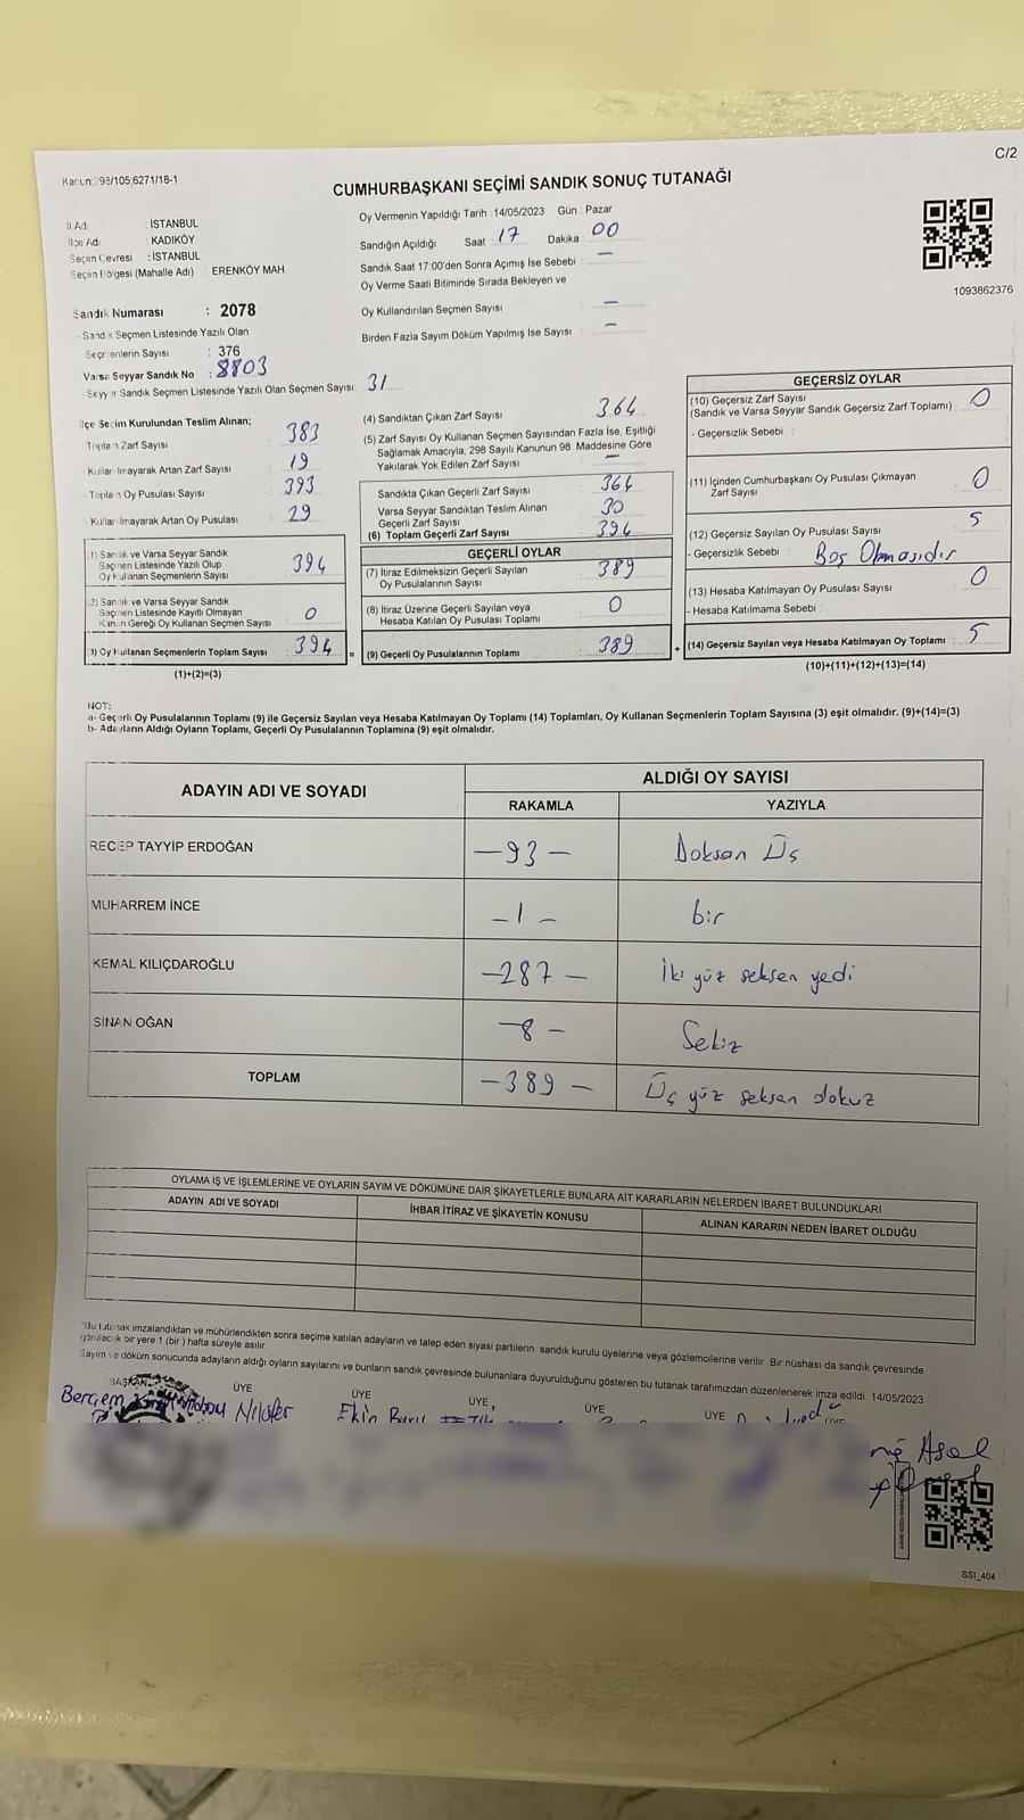 C/2
CUMHURBAŞKANI SEÇİMİ SANDIK SONUÇ TUTANAĞI
1093862376
İSTANBUL
KADIKÖY
Seçim Çevresi : İSTANBUL
Seçim Bölgesi (Mahalle Adı) ERENKÖY MAH
Sandık Numarası : 2078
Sandık Seçmen Listesinde Yazılı Olan
Seçmenlerin Sayısı : 376
Varsa Seyyar Sandık No : 8803
Seyyar Sandık Seçmen Listesinde Yazılı Olan Seçmen Sayısı 31
Oy Vermenin Yapıldığı Tarih :14/05/2023 Gün : Pazar
Sandığın Açıldığı Saat : 17 Dakika 00
Sandık Saat 17:00'den Sonra Açımış İse Sebebi : —
Oy Verme Saati Bitiminde Sırada Bekleyen ve
Oy Kullandırılan Seçmen Sayısı —
Birden Fazla Sayım Döküm Yapılmış İse Sayısı : —
İlçe Seçim Kurulundan Teslim Alınan;
Toplam Zarf Sayısı 383
Kullanılmayarak Artan Zarf Sayısı 19
Toplam Oy Pusulası Sayısı 393
Kullanılmayarak Artan Oy Pusulası 29
1) Sandık ve Varsa Seyyar Sandık
Seçmen Listesinde Yazılı Olup
Oy Kullanan Seçmenlerin Sayısı 394
2) Sandık ve Varsa Seyyar Sandık
Seçmen Listesinde Kayıtlı Olmayan
Kanun Gereği Oy Kullanan Seçmen Sayısı 0
3) Oy Kullanan Seçmenlerin Toplam Sayısı 394 =
(1)+(2)=(3)
(4) Sandıktan Çıkan Zarf Sayısı 364
(5) Zarf Sayısı Oy Kullanan Seçmen Sayısından Fazla İse, Eşitliği
Sağlamak Amacıyla, 298 Sayılı Kanunun 98. Maddesine Göre
Yakılarak Yok Edilen Zarf Sayısı —
Sandıkta Çıkan Geçerli Zarf Sayısı 364
Varsa Seyyar Sandıktan Teslim Alınan
Geçerli Zarf Sayısı 30
(6) Toplam Geçerli Zarf Sayısı 394
GEÇERLİ OYLAR
(7) İtiraz Edilmeksizin Geçerli Sayılan
Oy Pusulalarının Sayısı 389
(8) İtiraz Üzerine Geçerli Sayılan veya
Hesaba Katılan Oy Pusulası Toplamı 0
(9) Geçerli Oy Pusulalarının Toplamı 389 +
GEÇERSİZ OYLAR
(10) Geçersiz Zarf Sayısı
(Sandık ve Varsa Seyyar Sandık Geçersiz Zarf Toplamı) 0
- Geçersizlik Sebebi :
(11) İçinden Cumhurbaşkanı Oy Pusulası Çıkmayan
Zarf Sayısı 0
(12) Geçersiz Sayılan Oy Pusulası Sayısı 5
- Geçersizlik Sebebi : Boş Olmasıdır
(13) Hesaba Katılmayan Oy Pusulası Sayısı 0
- Hesaba Katılmama Sebebi :
(14) Geçersiz Sayılan veya Hesaba Katılmayan Oy Toplamı 5
(10)+(11)+(12)+(13)=(14)
NOT:
a- Geçerli Oy Pusulalarının Toplamı (9) ile Geçersiz Sayılan veya Hesaba Katılmayan Oy Toplamı (14) Toplamları, Oy Kullanan Seçmenlerin Toplam Sayısına (3) eşit olmalıdır. (9)+(14)=(3)
b- Adayların Aldığı Oyların Toplamı, Geçerli Oy Pusulalarının Toplamına (9) eşit olmalıdır.
ADAYIN ADI VE SOYADI ALDIĞI OY SAYISI
RAKAMLA YAZIYLA
RECEP TAYYİP ERDOĞAN —93— Doksan Üç
MUHARREM İNCE —1— bir
KEMAL KILIÇDAROĞLU —287— İki yüz seksen yedi
SİNAN OĞAN —8— Sekiz
TOPLAM —389— Üç yüz seksen dokuz
OYLAMA İŞ VE İŞLEMLERİNE VE OYLARIN SAYIM VE DÖKÜMÜNE DAİR ŞİKAYETLERLE BUNLARA AİT KARARLARIN NELERDEN İBARET BULUNDUKLARI
ADAYIN ADI VE SOYADI İHBAR İTİRAZ VE ŞİKAYETİN KONUSU ALINAN KARARIN NEDEN İBARET OLDUĞU
Bu tutanak imzalandıktan ve mühürlendikten sonra seçime katılan adayların ve talep eden siyasi partilerin sandık kurulu üyelerine veya gözlemcilerine verilir. Bir nüshası da sandık çevresinde
bir yere 1 (bir) hafta süreyle asılır
Sayım ve döküm sonucunda adayların aldığı oyların sayılarını ve bunların sandık çevresinde bulunanlara duyurulduğunu gösteren bu tutanak tarafımızdan düzenlenerek imza edildi. 14/05/2023
BAŞKAN ÜYE ÜYE ÜYE ÜYE ÜYE
Nilüfer Ekin
Asal
SSI_404